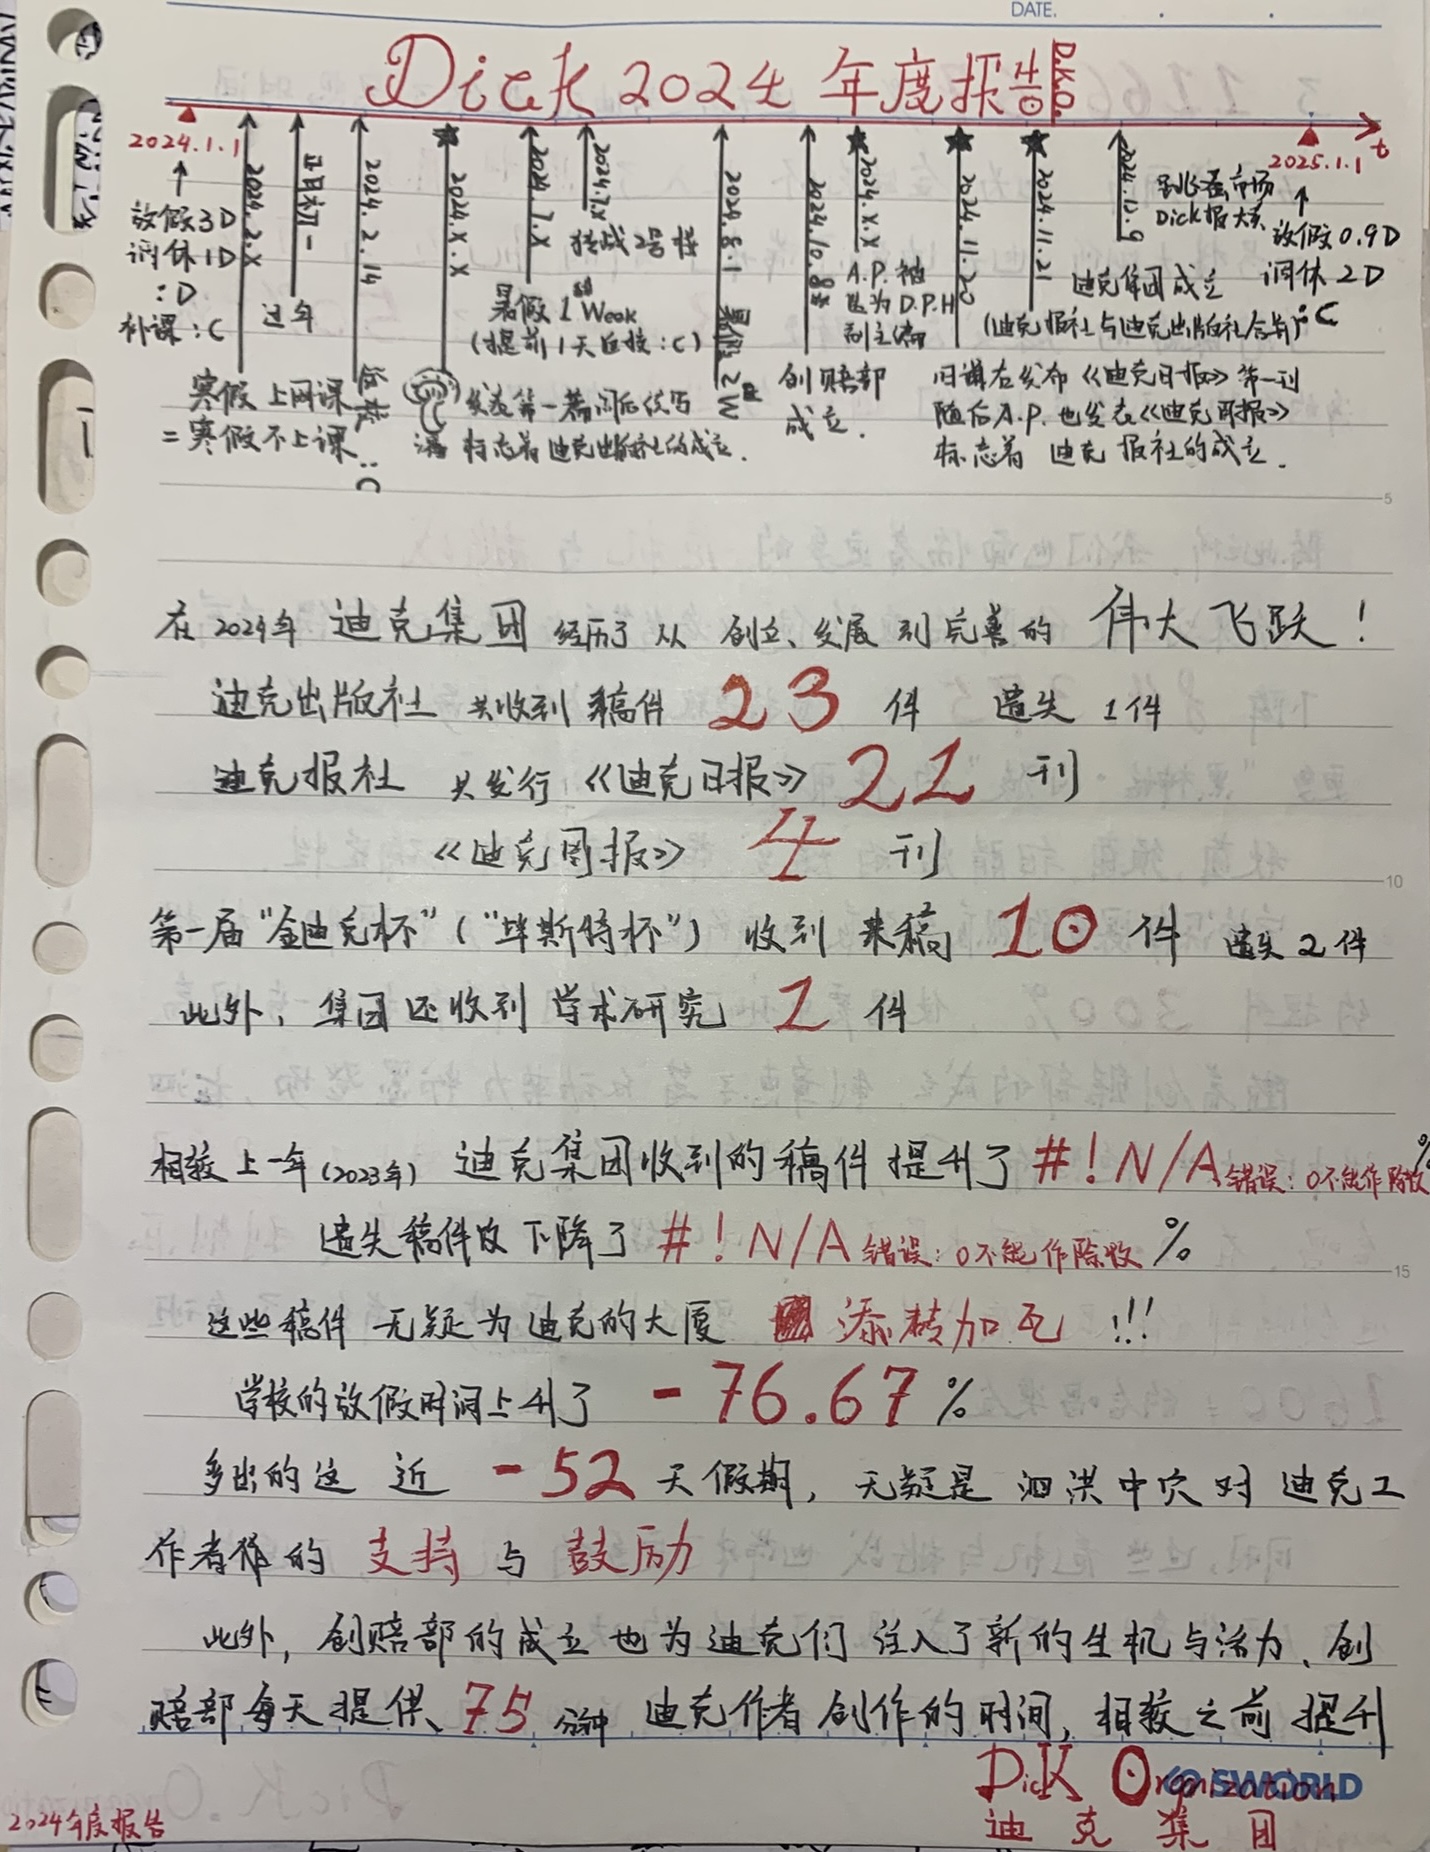 DATE.
Dick 2024 年度报告
D.K.O.
2024.1.1
放假3D
调休1D
:D
补课:C
2024.2.X
寒假上网课
=寒假不上课
正月初一
过年
2024.2.14
:C
2024.X.X
标志着迪克出版社的成立.
2024.7.X
暑假1 Week
(提前1天 :C)
2024.7.X
转战2号楼
2024.8.1
暑假2W
2024.10.8
创赔部
成立.
2024.X.X
A.P.被
为D.P.H
副主编
2024.11.20
发布《迪克日报》第一刊
随后A.P.也发表《迪克周报》
标志着 迪克报社的成立.
2024.11.21
迪克集团成立
(迪克报社与迪克出版社合并)
2024.12.9
跳蚤市场
Dick报大卖
2025.1.1
t
放假0.9D
调休2D
:C
在2024年 迪克集团 经历了从 创立、发展到完善的 伟大飞跃!
迪克出版社 共收到稿件 23 件 遗失1件
迪克报社 共发行《迪克日报》21 刊
《迪克周报》 4 刊
第一届“金迪克杯”(“毕斯特杯”) 收到来稿 10 件 遗失2件
此外,集团还收到学术研究 1 件
相较上一年(2023年) 迪克集团收到的稿件提升了 #!N/A 错误:0不能作除数 %
遗失稿件数下降了 #!N/A 错误:0不能作除数 %
这些稿件无疑为迪克的大厦 添砖加瓦 !!!
学校的放假时间上升了 -76.67%
多出的这 近 -52 天假期,无疑是 泗洪中穴对 迪克工
作者作的 支持 与 鼓励
此外,创赔部的成立也为迪克们注入了新的生机与活力、创
赔部每天提供 75 分钟 迪克作者创作的时间,相较之前提升
Dick Organization
SWORLD
迪克集团
2024年度报告